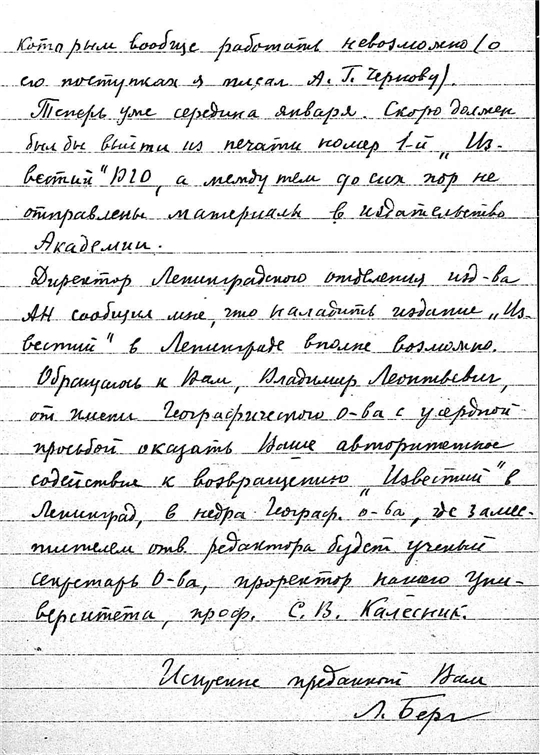 которым вообще работать невозможно (о
его поступках я писал А. Г. Чернову).
Теперь уже середина января. Скоро должен
был бы выйти из печати номер 1-й „Из-
вестий" ВГО, а между тем до сих пор не
отправлены материалы в издательство
Академии.
Директор Ленинградского отделения изд-ва
АН сообщил мне, что наладить издание „Из-
вестий" в Ленинграде вполне возможно.
Обращаюсь к Вам, Владимир Леонтьевич,
от имени Географического о-ва с усердной
просьбой оказать Ваше авторитетное
содействие к возвращению „Известий" в
Ленинград, в недра Географ. о-ва, где замес-
тителем отв. редактора будет ученый
секретарь О-ва, проректор нашего Уни-
верситета, проф. С. В. Калесник.
Искренне преданный Вам
Л. Берг